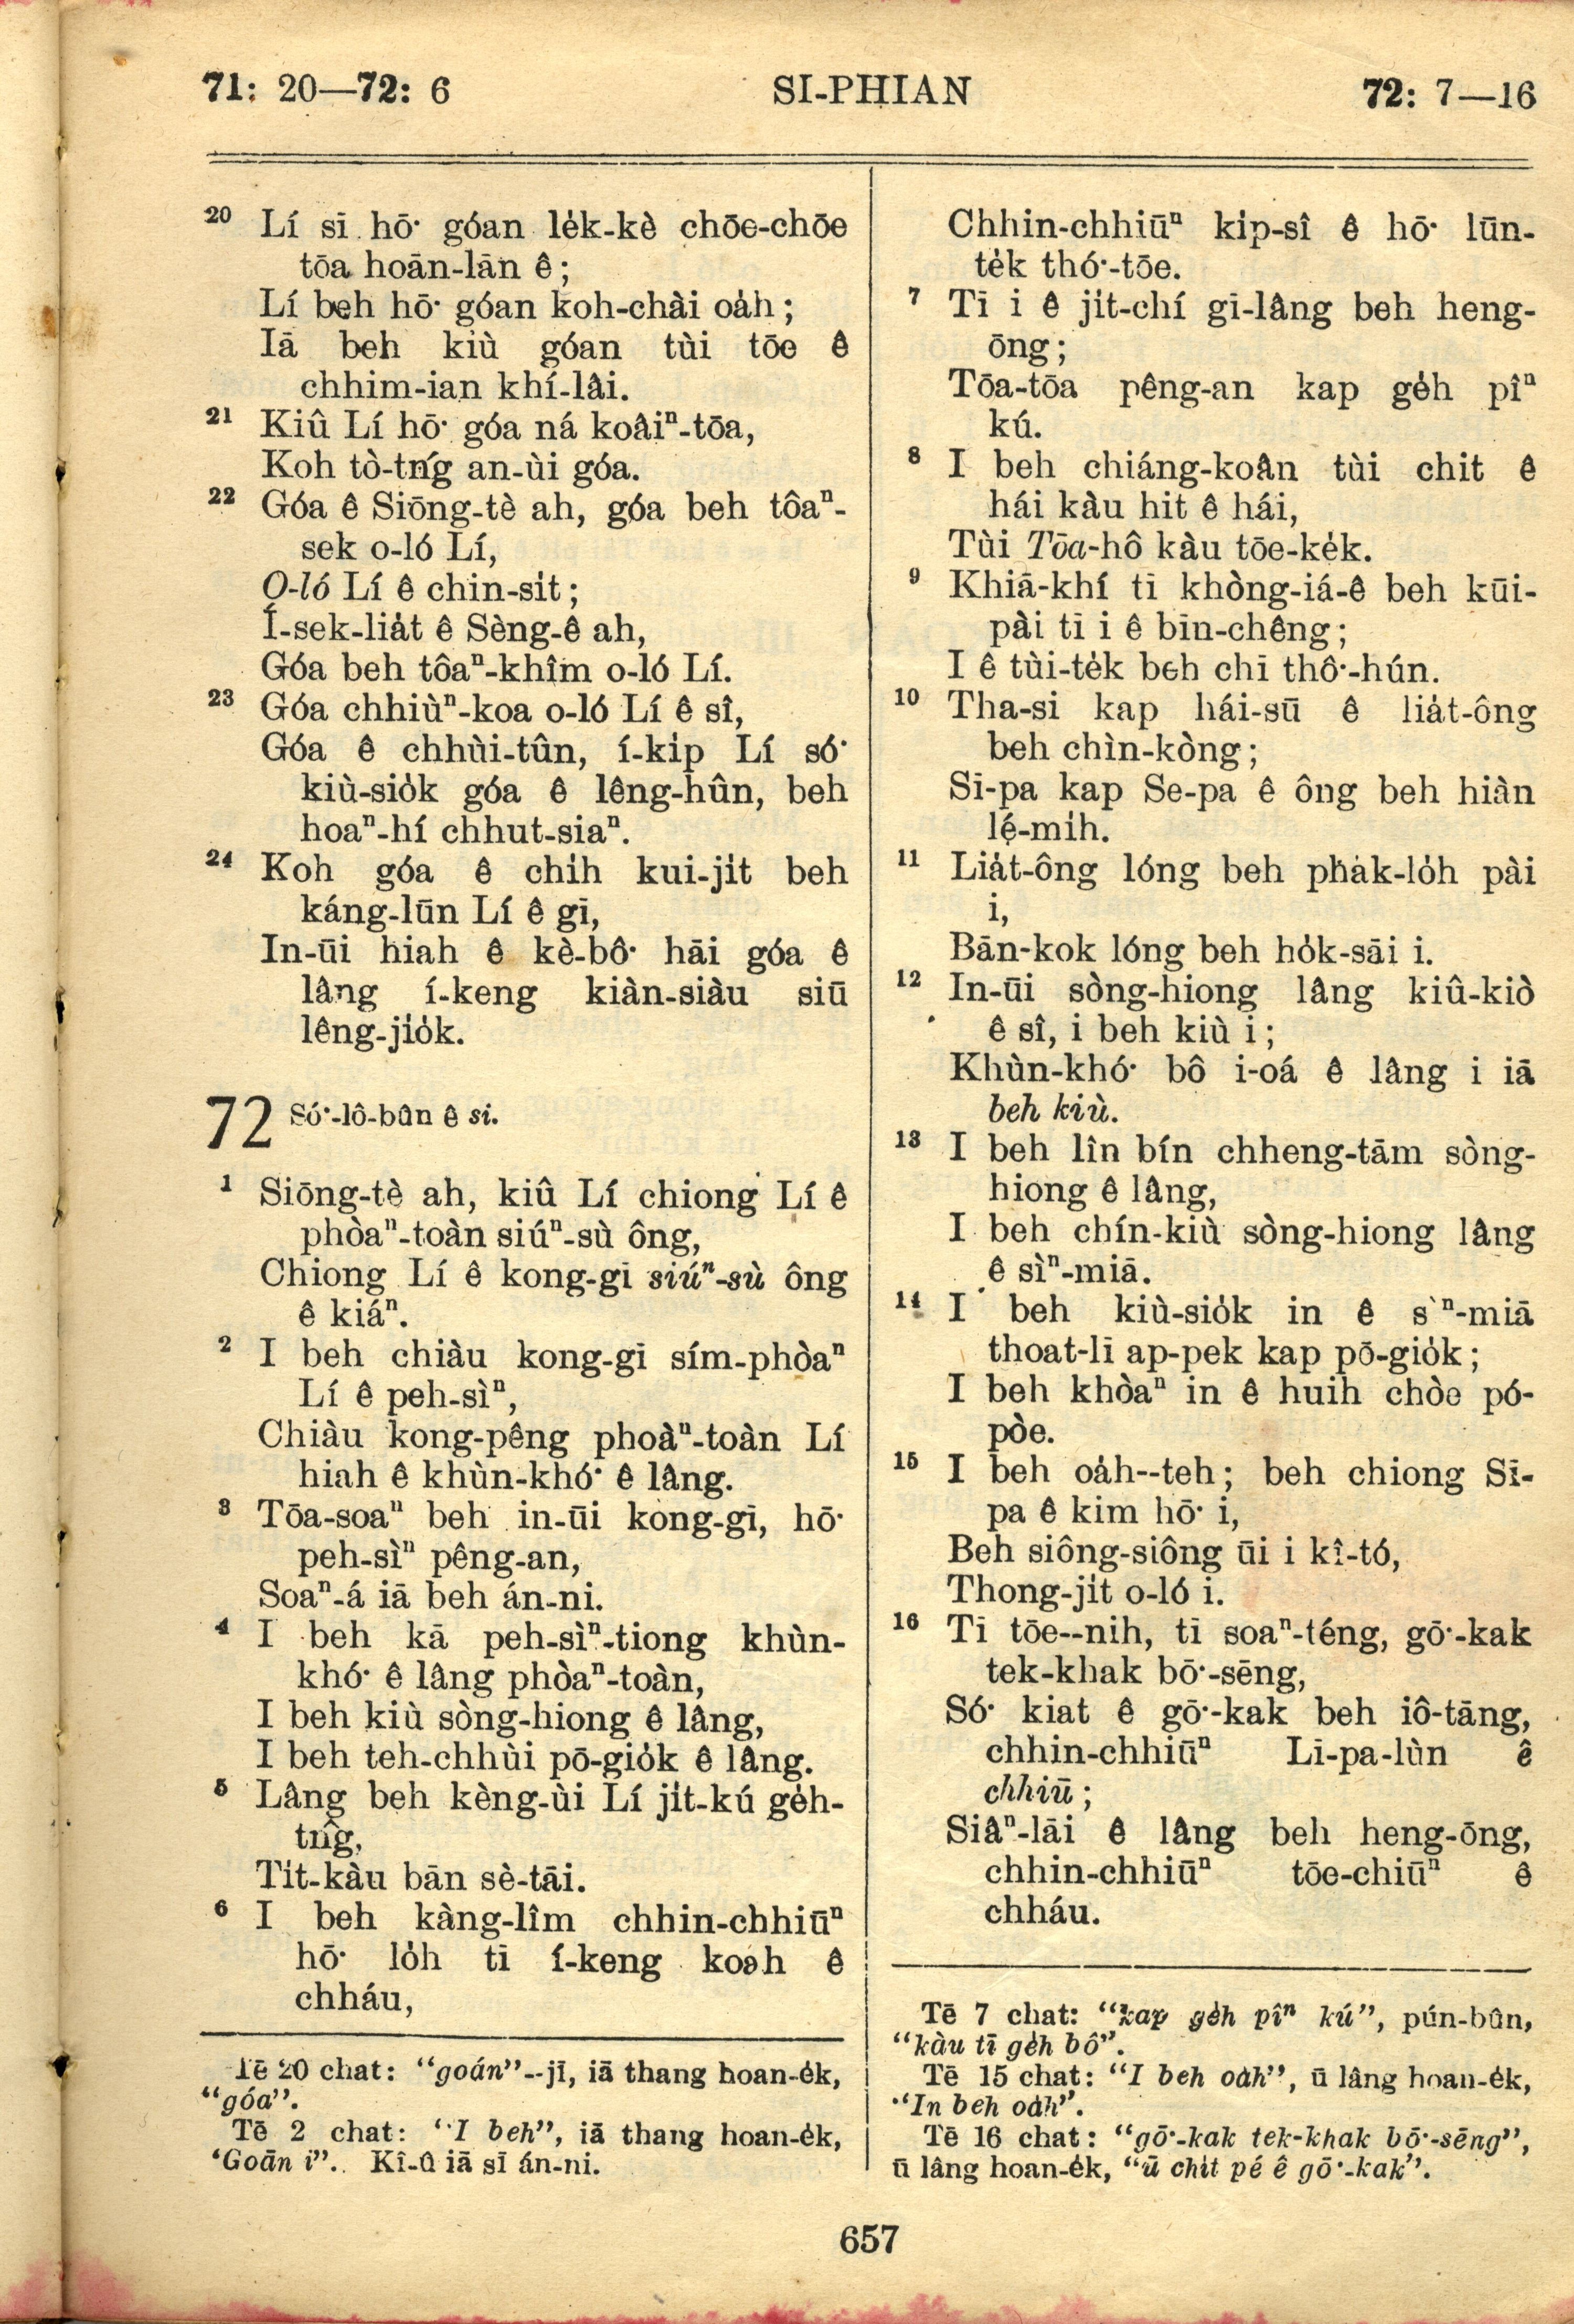 71: 20—72: 6 SI-PHIAN 72: 7—16
20 Lí sī hō͘ góan le̍k-kè chōe-chōe
tōa hoān-lān ê;
Lí beh hō͘ góan koh-chài oa̍h;
Iā beh kiù góan tùi tōe ê
chhim-ian khí-lâi.
21 Kiû Lí hō͘ góa ná koâiⁿ-tōa,
Koh tò-tńg an-ùi góa.
22 Góa ê Siōng-tè ah, góa beh tôaⁿ-
sek o-ló Lí,
O-ló Lí ê chin-si̍t;
Í-sek-lia̍t ê Sèng-ê ah,
Góa beh tôaⁿ-khîm o-ló Lí.
23 Góa chhiùⁿ-koa o-ló Lí ê sî,
Góa ê chhùi-tûn, í-ki̍p Lí só͘
kiù-sio̍k góa ê lêng-hûn, beh
hoaⁿ-hí chhut-siaⁿ.
24 Koh góa ê chi̍h kui-ji̍t beh
káng-lūn Lí ê gī,
In-ūi hiah ê kè-bô͘ hāi góa ê
lâng í-keng kiàn-siàu siū
lêng-jio̍k.
72 Só͘-lô-bûn ê si.
1 Siōng-tè ah, kiû Lí chiong Lí ê
phòaⁿ-toàn siúⁿ-sù ông,
Chiong Lí ê kong-gī siúⁿ-sù ông
ê kiáⁿ.
2 I beh chiàu kong-gī sím-phòaⁿ
Lí ê peh-sìⁿ,
Chiàu kong-pêng phoàⁿ-toàn Lí
hiah ê khùn-khó͘ ê lâng.
3 Tōa-soaⁿ beh in-ūi kong-gī, hō͘
peh-sìⁿ pêng-an,
Soaⁿ-á iā beh án-ni.
4 I beh kā peh-sìⁿ-tiong khùn-
khó͘ ê lâng phòaⁿ-toàn,
I beh kiù sòng-hiong ê lâng,
I beh teh-chhùi pō-gio̍k ê lâng.
5 Lâng beh kèng-ùi Lí ji̍t-kú ge̍h-
tn̂g,
Ti̍t-kàu bān sè-tāi.
6 I beh kàng-lîm chhin-chhiūⁿ
hō͘ lo̍h tī í-keng koah ê
chháu,
Tē 20 chat: “goán”--jī, iā thang hoan-e̍k,
“góa”.
Tē 2 chat: “I beh”, iā thang hoan-e̍k,
‘Goān i”. Kî-û iā sī án-ni.
Chhin-chhiūⁿ ki̍p-sî ê hō͘ lūn-
te̍k thó͘-tōe.
7 Tī i ê ji̍t-chí gī-lâng beh heng-
ōng;
Tōa-tōa pêng-an kap ge̍h pîⁿ
kú.
8 I beh chiáng-koân tùi chit ê
hái kàu hit ê hái,
Tùi Tōa-hô kàu tōe-ke̍k.
9 Khiā-khí tī khòng-iá-ê beh kūi-
pài tī i ê bīn-chêng;
I ê tùi-te̍k beh chī thô͘-hún.
10 Tha-si kap hái-sū ê lia̍t-ông
beh chìn-kòng;
Sī-pa kap Se-pa ê ông beh hiàn
lé-mi̍h.
11 Lia̍t-ông lóng beh pha̍k-lo̍h pài
i,
Bān-kok lóng beh ho̍k-sāi i.
12 In-ūi sòng-hiong lâng kiû-kiò
ê sî, i beh kiù i;
Khùn-khó͘ bô i-oá ê lâng i iā
beh kiù.
13 I beh lîn bín chheng-tām sòng-
hiong ê lâng,
I beh chín-kiù sòng-hiong lâng
ê sìⁿ-miā.
14 I beh kiù-sio̍k in ê sìⁿ-miā
thoat-lī ap-pek kap pō-gio̍k;
I beh khòaⁿ in ê huih chòe pó-
pòe.
15 I beh oa̍h--teh; beh chiong Sī-
pa ê kim hō͘ i,
Beh siông-siông ūi i kî-tó,
Thong-ji̍t o-ló i.
16 Tī tōe--nih, tī soaⁿ-téng, gō͘-kak
tek-khak bō͘-sēng,
Só͘ kiat ê gō͘-kak beh iô-tāng,
chhin-chhiūⁿ Lī-pa-lùn ê
chhiū;
Siâⁿ-lāi ê lâng beh heng-ōng,
chhin-chhiūⁿ tōe-chiūⁿ ê
chháu.
Tē 7 chat: “kap ge̍h pîⁿ kú”, pún-bûn,
“kàu tī ge̍h bô”.
Tē 15 chat: “I beh oa̍h”, ū lâng hoan-e̍k,
“In beh oa̍h”.
Tē 16 chat: “gō͘-kak tek-khak bō͘-sēng”,
ū lâng hoan-e̍k, “ū chi̍t pé ê gō͘-kak”.
657